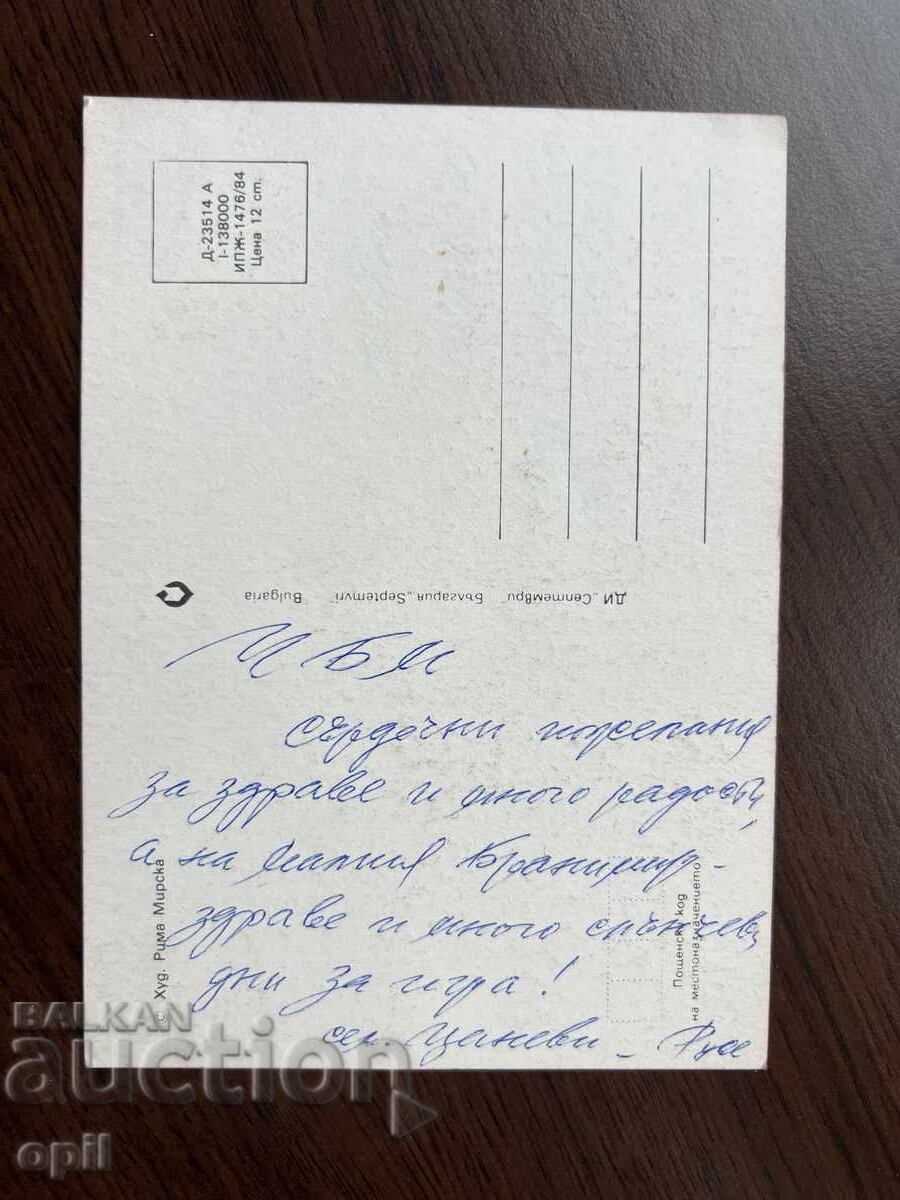 Д-23514 А
I-138000
ИПЖ-1476/84
Цена 12 ст.
ДИ „Септември" България „Septemvri" Bulgaria
ЧБМ
сърдечни пожелания
за здраве и много радости,
а на малкия Бранимир -
здраве и много слънчеви
дни за игра!
сем. Цаневи - Русе
© Худ. Рима Мирска
Пощенски код
на местоназначението
BALKAN
auction
opil